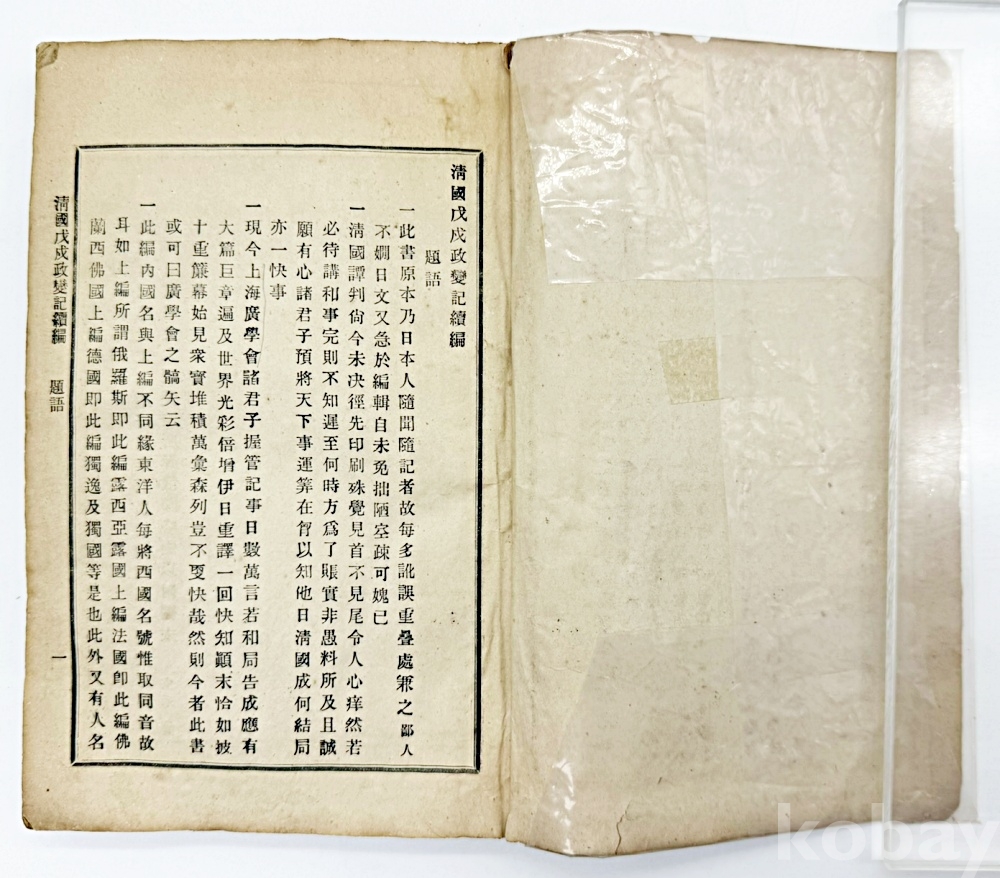 清國戊戌政變記續編
題語
一此書原本乃日本人隨聞隨記者故每多訛誤重叠處兼之鄙人
不嫻日文又急於編輯自未免拙陋空疎可媿已
一清國譚判尙今未决徑先印刷殊覺見首不見尾令人心痒然若
必待講和事完則不知遲至何時方爲了賬實非愚料所及且誠
願有心諸君子預將天下事運筭在胷以知他日清國成何結局
亦一快事
一現今上海廣學會諸君子握管記事日數萬言若和局告成應有
大篇巨章遍及世界光彩倍增伊日重譯一回快知顚末恰如披
十重簾幕始見衆寶堆積萬彙森列豈不更快哉然則今者此書
或可曰廣學會之嚆矢云
一此編內國名與上編不同緣東洋人每將西國名號惟取同音故
耳如上編所謂俄羅斯即此編露西亞露國上編法國即此編佛
蘭西佛國上編德國即此編獨逸及獨國等是也此外又有人名
清國戊戌政變記續編
題語
一
kobay